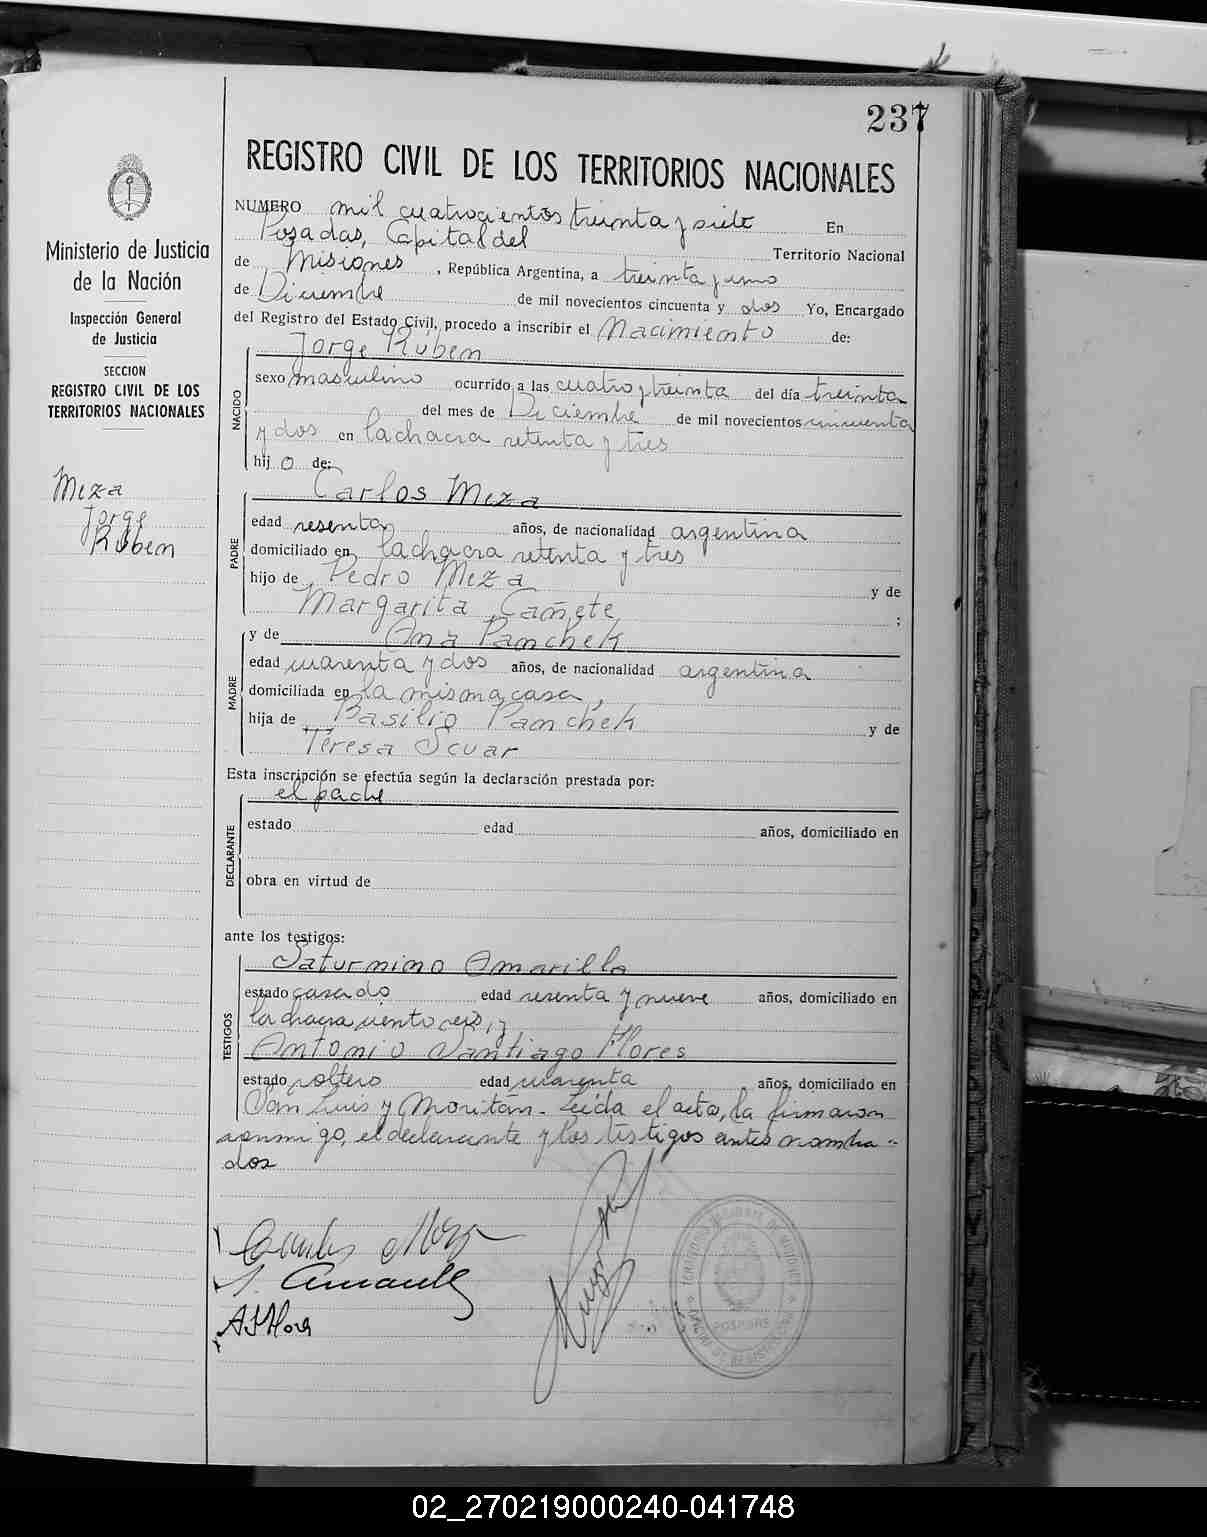 237
REGISTRO CIVIL DE LOS TERRITORIOS NACIONALES
Ministerio de Justicia
de la Nación
Inspección General
de Justicia
SECCION
REGISTRO CIVIL DE LOS
TERRITORIOS NACIONALES
Meza
Jorge
Rúben
NUMERO mil cuatrocientos treinta y siete En
Posadas, Capital del Territorio Nacional
de Misiones, República Argentina, a treinta y uno
de Diciembre de mil novecientos cincuenta y dos Yo, Encargado
del Registro del Estado Civil, procedo a inscribir el Nacimiento de:
Jorge Rúben
NACIDO
sexo masculino ocurrido a las cuatro y treinta del día treinta
del mes de Diciembre de mil novecientos cincuenta
y dos en la chacra setenta y tres
hijo de:
Carlos Meza
PADRE
edad sesenta años, de nacionalidad argentina
domiciliado en la chacra setenta y tres
hijo de Pedro Meza y de
Margarita Cañete ;
y de Ana Panchek
MADRE
edad cuarenta y dos años, de nacionalidad argentina
domiciliada en la misma casa,
hija de Basilio Panchek y de
Teresa Scuar
Esta inscripción se efectúa según la declaración prestada por:
el padre
DECLARANTE
estado edad años, domiciliado en
obra en virtud de
ante los testigos:
Saturnino Amarilla
TESTIGOS
estado casado edad sesenta y nueve años, domiciliado en
la chacra ciento seis, y
Antonio Santiago Flores
estado soltero edad cuarenta años, domiciliado en
San Luis y Moritán. Leída el acta, la firmaron
conmigo, el declarante y los testigos antes nombra-
dos
Carlos Meza
S. Amarilla
A S Flores
POSADAS
02_270219000240-041748